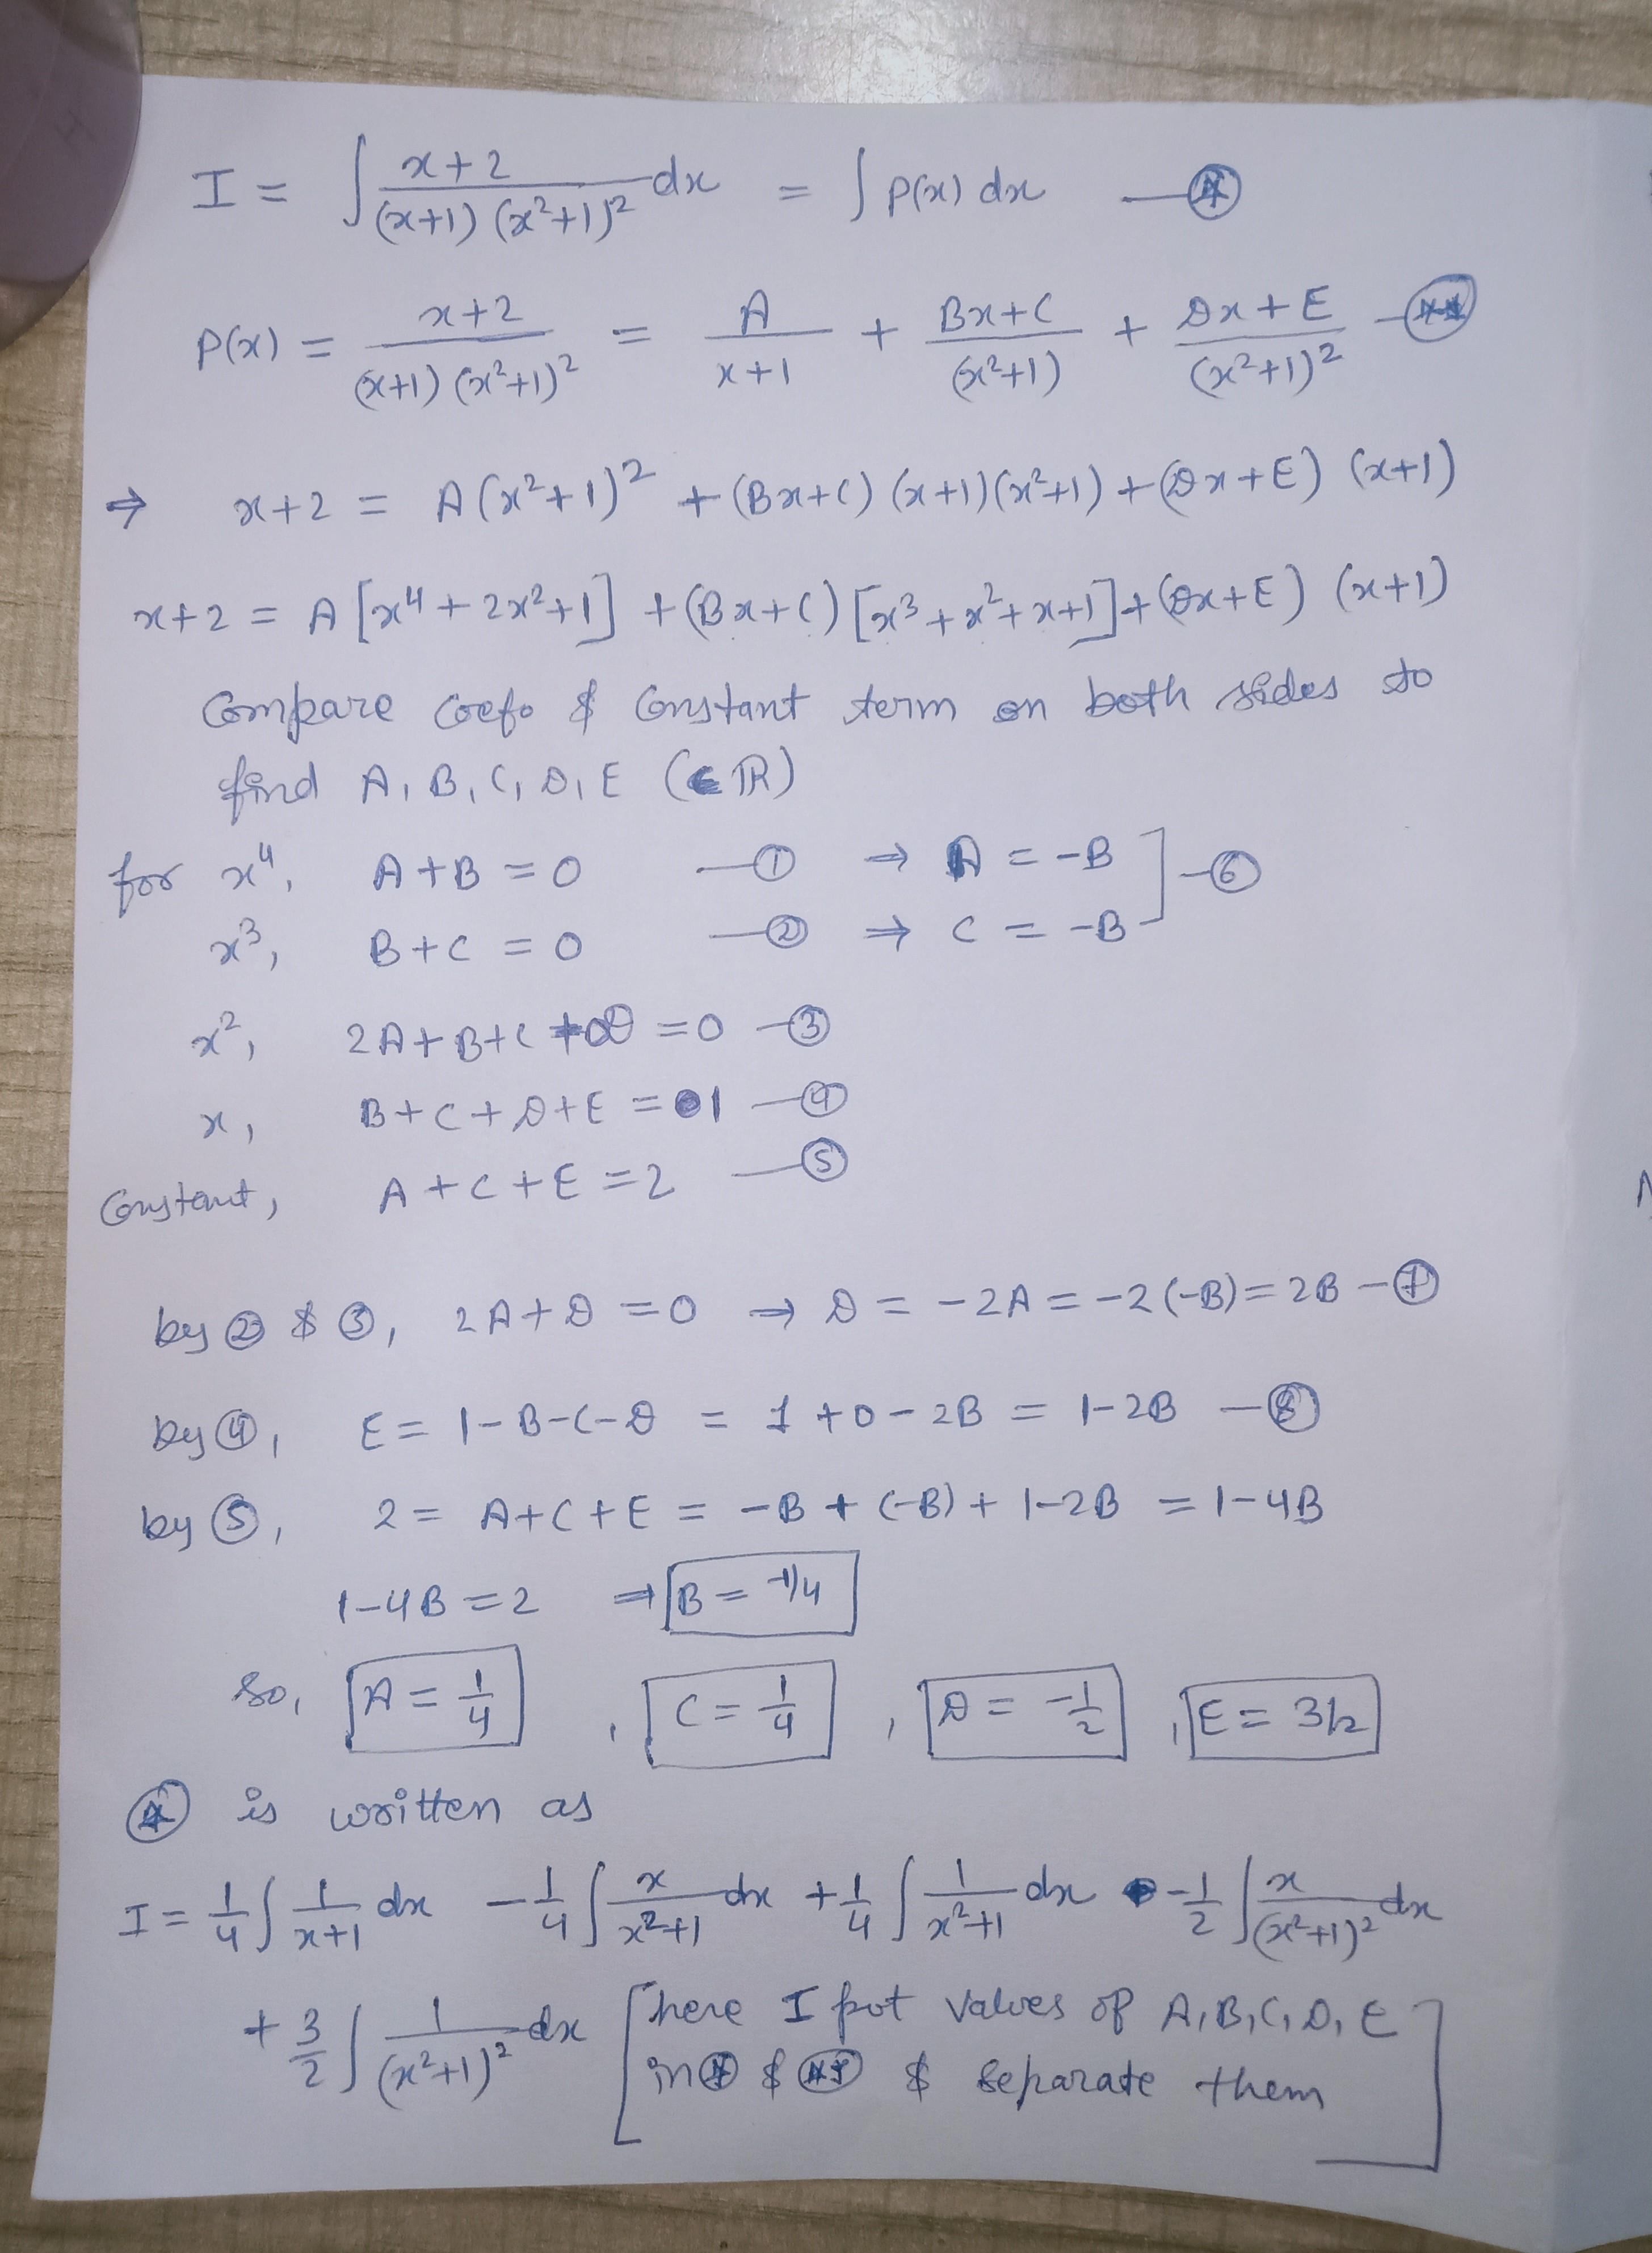 I = ∫ (x+2)/((x+1)(x²+1)²) dx = ∫ P(x) dx —(*)
P(x) = (x+2)/((x+1)(x²+1)²) = A/(x+1) + (Bx+C)/(x²+1) + (Dx+E)/(x²+1)² —(**)
⇒ x+2 = A(x²+1)² + (Bx+C)(x+1)(x²+1) + (Dx+E)(x+1)
x+2 = A[x⁴+2x²+1] + (Bx+C)[x³+x²+x+1] + (Dx+E)(x+1)
Compare coefs & Constant term on both sides to
find A, B, C, D, E (∈ ℝ)
for x⁴, A+B = 0 —① ⇒ A = -B ] —⑥
x³, B+C = 0 —② ⇒ C = -B
x², 2A+B+C+D = 0 —③
x, B+C+D+E = 1 —④
Constant, A+C+E = 2 —⑤
by ② & ③, 2A+D = 0 ⇒ D = -2A = -2(-B) = 2B —⑦
by ④, E = 1-B-C-D = 1+0-2B = 1-2B —⑧
by ⑤, 2 = A+C+E = -B+(-B)+1-2B = 1-4B
1-4B = 2 ⇒ B = -1/4
So, A = 1/4, C = 1/4, D = -1/2, E = 3/2
(*) is written as
I = 1/4 ∫ 1/(x+1) dx - 1/4 ∫ x/(x²+1) dx + 1/4 ∫ 1/(x²+1) dx - 1/2 ∫ x/(x²+1)² dx
+ 3/2 ∫ 1/(x²+1)² dx [here I put values of A, B, C, D, E
in (*) & (**) & separate them]